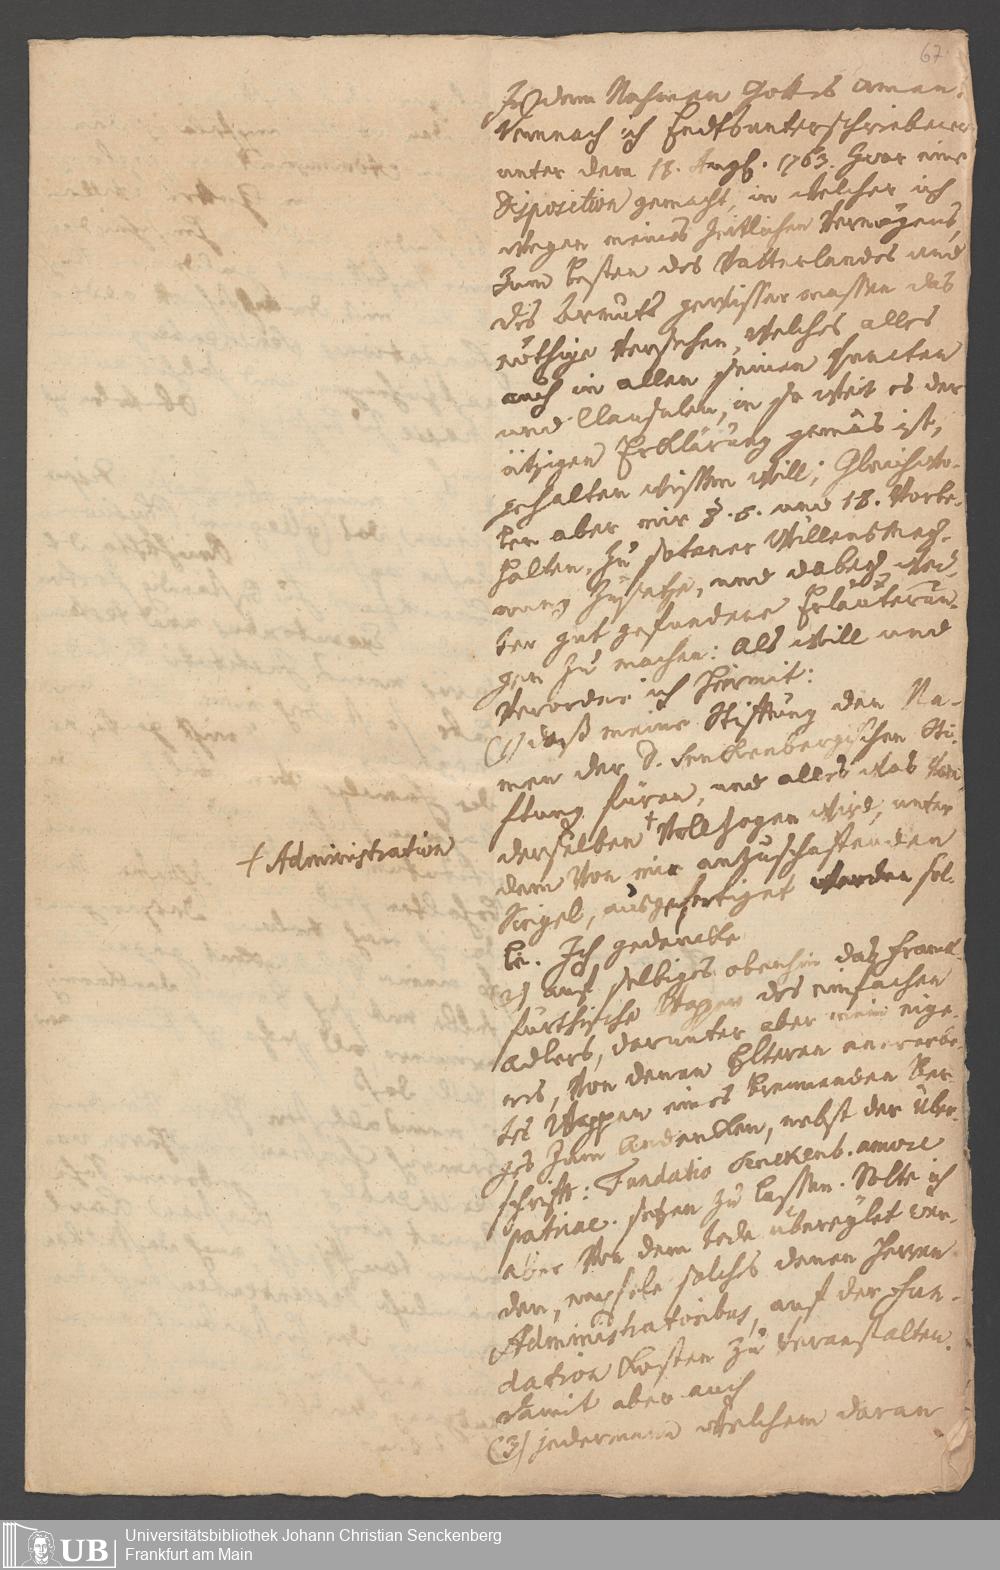 67
In dem Nahmen Gottes amen.
Demnach ich Endtsunterschriebener
unter dem 18. Augs. 1763. zwar eine
Disposition gemacht, in welcher ich
wegen meines zeitlichen Vermögens,
zum besten des Vatterlandes und
des Armuts gewisser massen das
nöthige versehen, welches alles
auch in allen seinen Puncten
und Clausulen, in so weit es der
itzigen Erklärung gemäs ist,
gehalten wissen will; Gleichwo-
len aber mir §. 6. und 18. vorbe-
halten, zu sotaner Willensmey-
nung Zusätze, und dabey wei-
ter gut gefundene Erläuterun-
gen zu machen: Als will und
verordne ich hiermit:
(1) daß meine Stiftung den Na-
men der D. Senckenbergischen Sti-
ftung füren, und alles was von
derselben † vollzogen wird, unter
† Administration
dem von mir anzuschaffenden
Siegel, ausgefertiget werden sol-
le. Ich gedencke
(2) auf selbiges obenhin das Franck-
furthische Wappen des einfachen
adlers, darunter aber mein eige-
nes, von denen Elteren anererbe-
tes Wappen eines brennenden Ber-
ges zum Andencken, nebst der über-
schrift: Fundatio Senckenb. amore
patriae. setzen zu lassen. Solte ich
aber von dem tode übereylet wer-
den, empfele solches denen Herren
Administratoribus, auf der Fun-
dation Kosten zu veranstalten.
Damit aber auch
(3) jedermann welchem daran
UB
Universitätsbibliothek Johann Christian Senckenberg
Frankfurt am Main